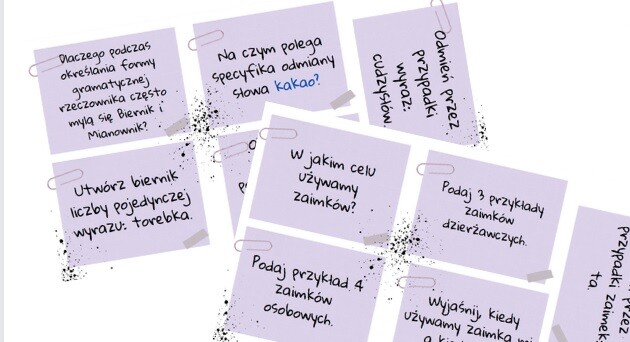 Dlaczego podczas
określania formy
gramatycznej
rzeczownika często
mylą się Biernik i
Mianownik?
Na czym polega
specyfika odmiany
słowa kakao?
Odmień przez
przypadki
wyraz:
cudzysłów.
Utwórz biernik
liczby pojedynczej
wyrazu: torebka.
W jakim celu
używamy
zaimków?
Podaj 3 przykłady
zaimków
dzierżawczych.
Podaj przykład 4
zaimków
osobowych.
Wyjaśnij, kiedy
używamy zaimka
a
przez
przypadki zaimek:
ta.